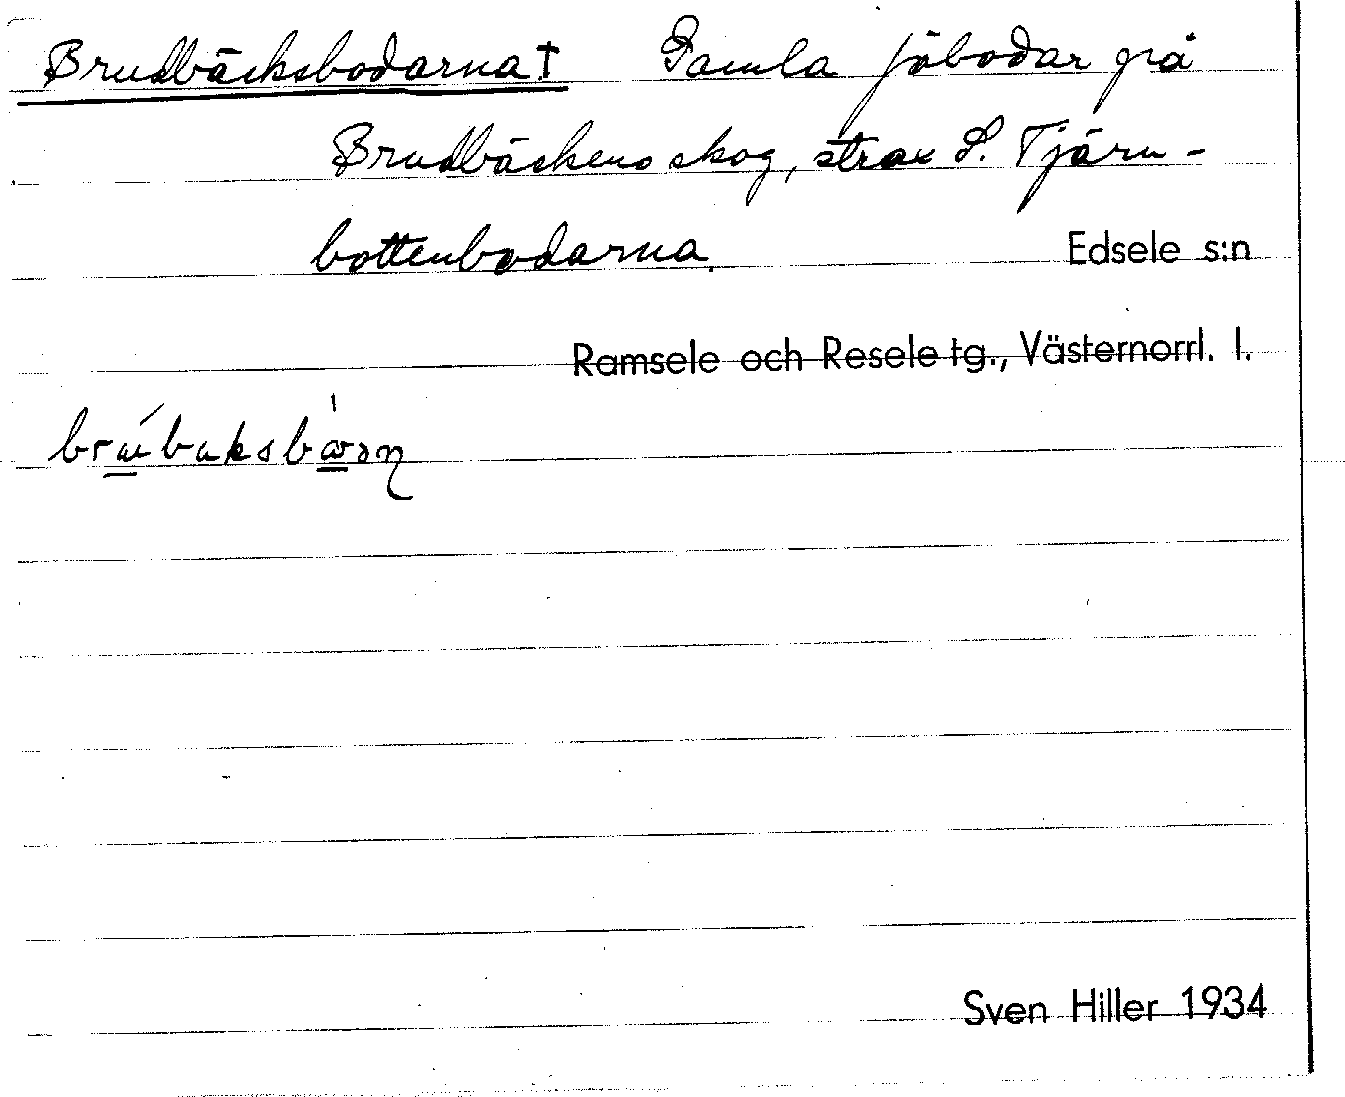 Brudbäcksbodarna † Gamla fäbodar på
Brudbäckens skog, strax S. Tjärn-
bottenbodarna.
Edsele s:n
Ramsele och Resele tg., Västernorrl. l.
Sven Hiller 1934